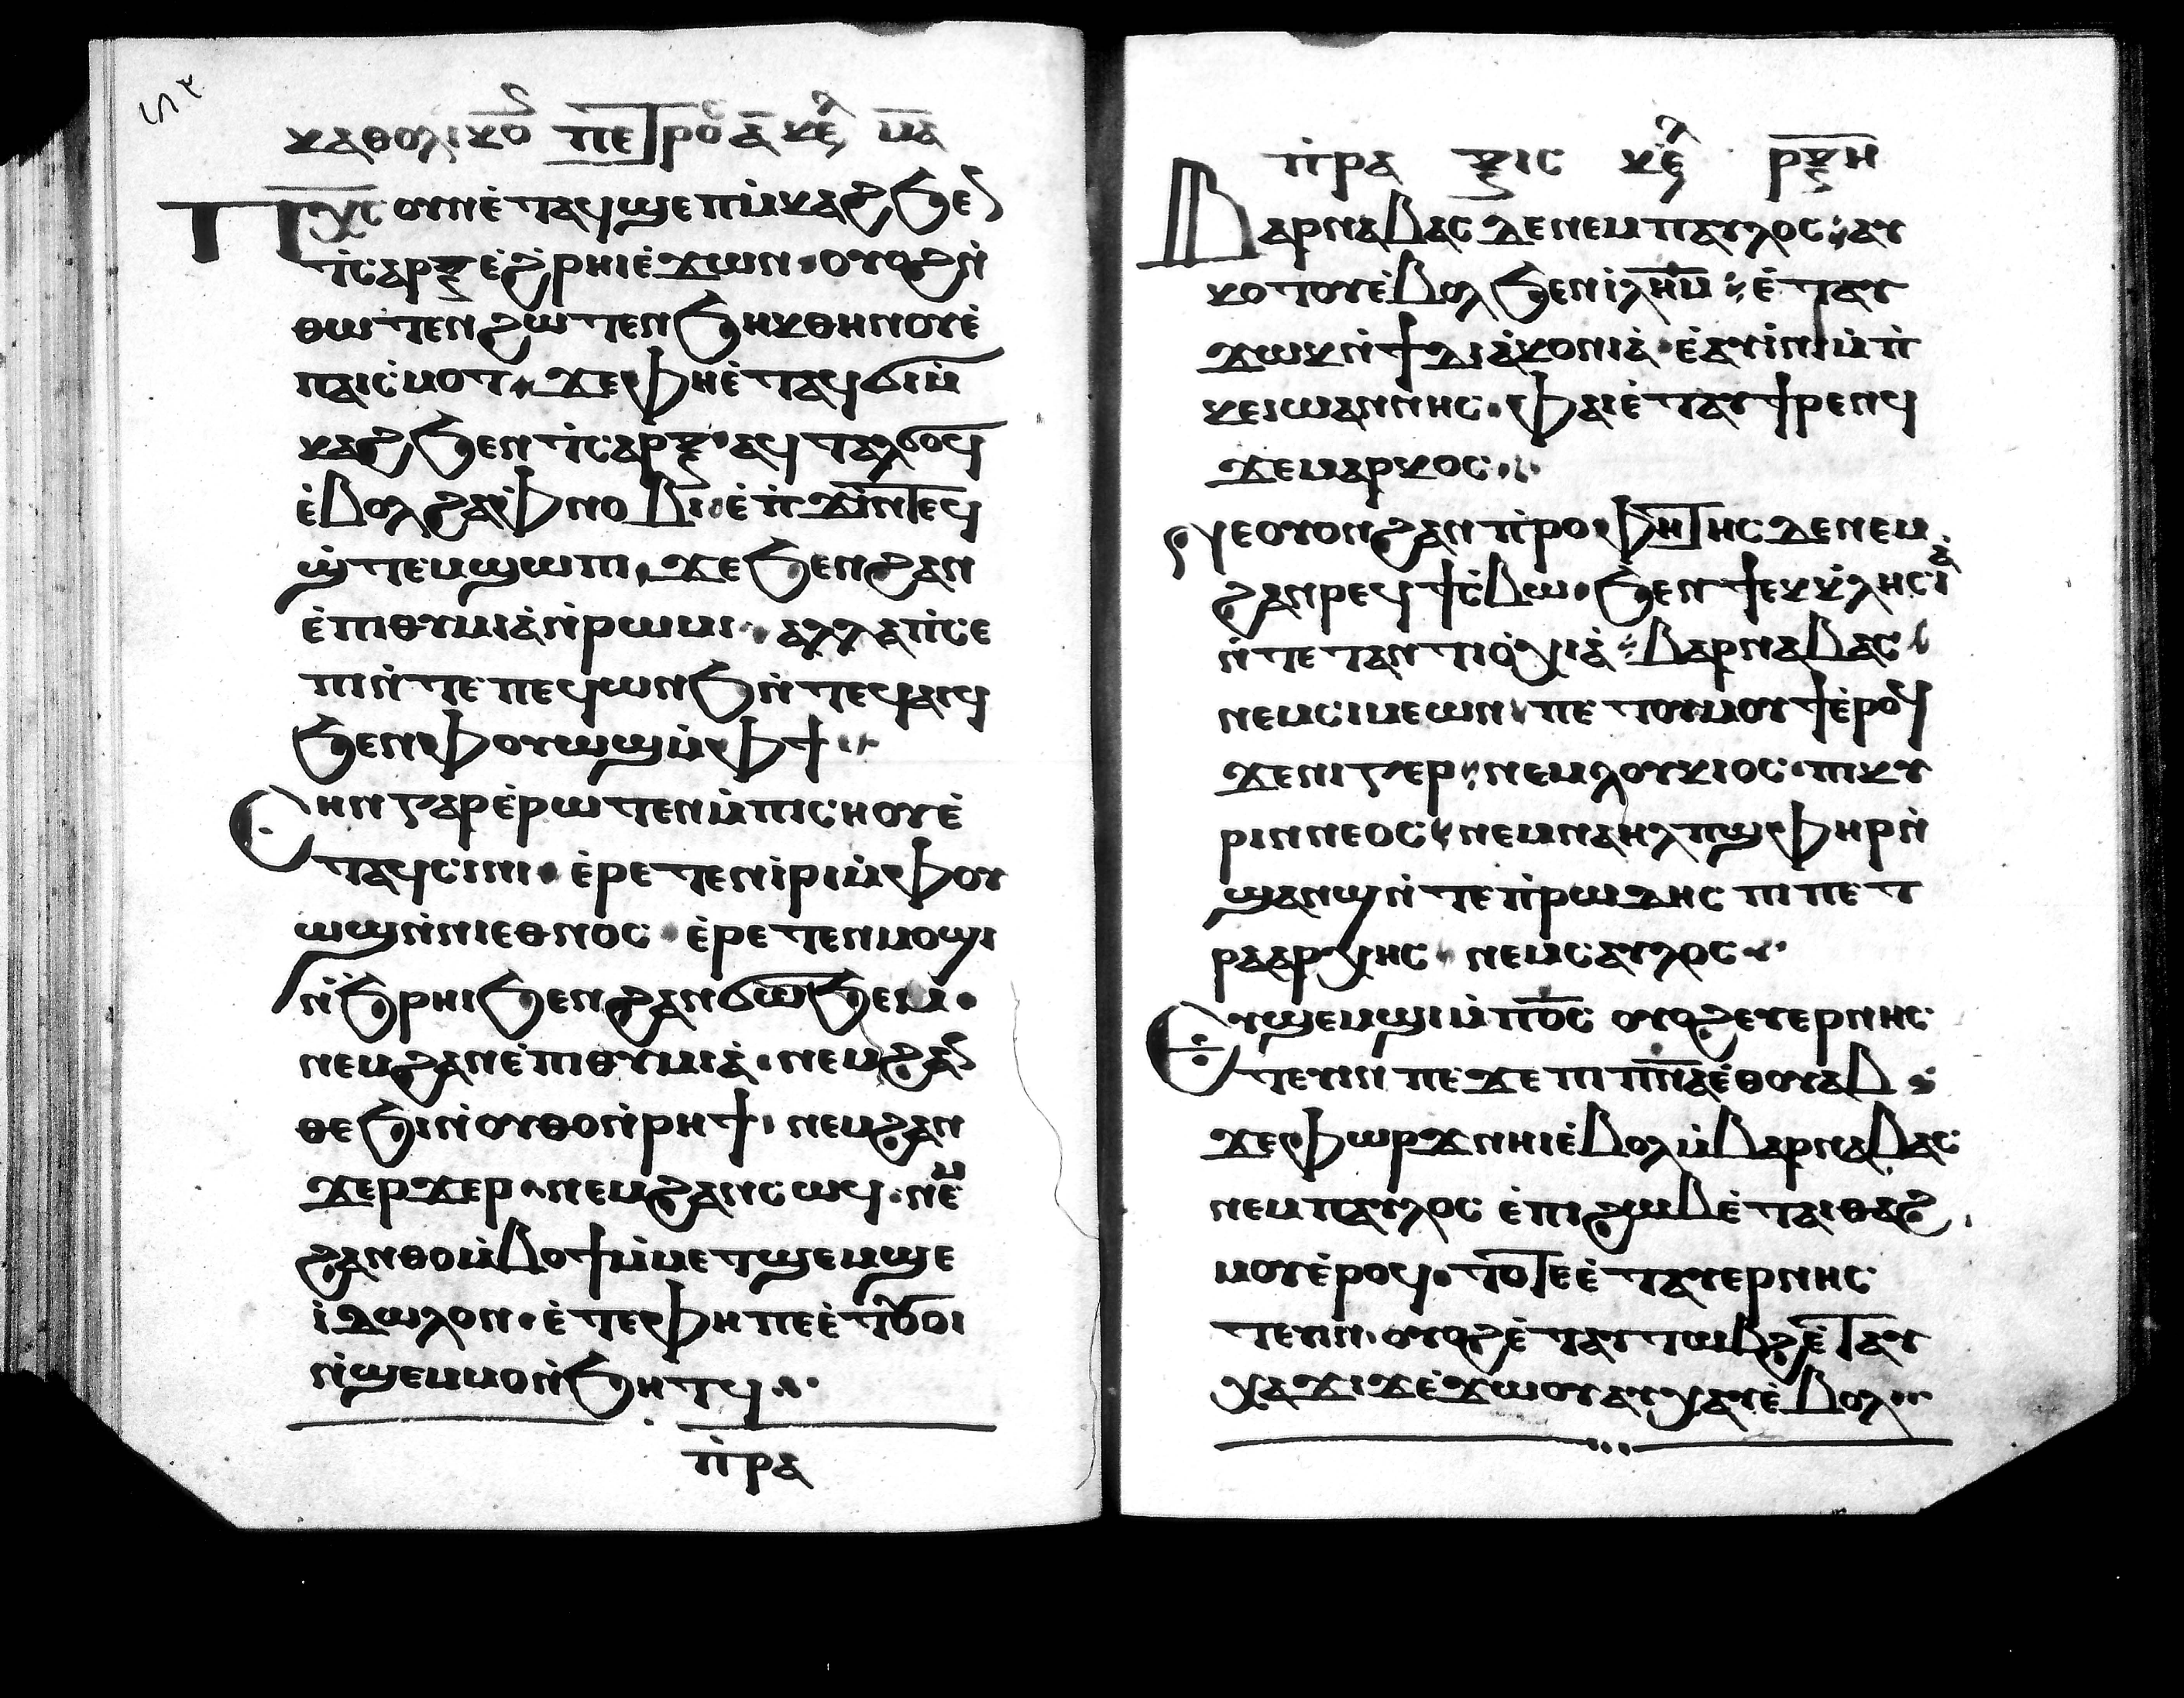 ⲕⲁⲑⲟⲗⲓⲕⲟ̅ ⲡⲉⲧⲣⲟ ⲁ̅ ⲕⲉ ⲙ̅ⲁ̅
ⲡⲭ̅ⲥ ⲟⲩⲛ ⲉ̀ⲧⲁϥϣⲉⲡ ⲙ̀ⲕⲁϩ ϧⲉ
ⲧ̀ⲥⲁⲣⲝ ⲉ̀ϩ̀ⲣⲏⲓ ⲉ̀ϫⲱⲛ · ⲟⲩⲟϩ ⲛ̀
ⲑⲱⲧⲉⲛ ϩⲱⲧⲉⲛ ϧⲏⲕ ⲑⲏⲛⲟⲩ ⲉ̀
ⲡⲁⲓⲥ̀ⲙⲟⲧ · ϫⲉ ⲫⲏ ⲉ̀ⲧⲁϥϭⲓ ⲙ̀
ⲕⲁϩ ϧⲉⲛ ⲧ̀ⲥⲁⲣⲝ · ⲁϥⲧⲁⲗϭⲟϥ
ⲉ̀ⲃⲟⲗ ϩⲁ ⲫ̀ⲛⲟⲃⲓ · ⲉ̀ⲡ̀ϫⲓⲛⲧⲉϥ
ϣ̀ⲧⲉⲙϣⲱⲡⲓ, ϫⲉ ϧⲉⲛ ϩⲁⲛ
ⲉ̀ⲡⲓⲑⲩⲙⲓⲁ̀ ⲛ̀ⲣⲱⲙⲓ · ⲁⲗⲗⲁ ⲡ̀ⲥⲉ
ⲡⲓ ⲛ̀ⲧⲉ ⲡⲉϥⲱⲛϧ ⲛ̀ⲧⲉϥⲁⲓϥ
ϧⲉⲛ ⲫⲟⲩⲱϣ ⲙ̀ⲫϯ ··
ⲉⲏⲛ ⲅⲁⲣ ⲉ̀ⲣⲱⲧⲉⲛ ⲙ̀ⲡⲓⲥⲏⲟⲩ ⲉ̀
ⲧⲁϥⲥⲓⲛⲓ · ⲉ̀ⲣⲉⲧⲉⲛⲓ̀ⲣⲓ ⲙ̀ⲫⲟⲩ
ⲱϣ ⲛ̀ⲛⲓⲉⲑⲛⲟⲥ · ⲉ̀ⲣⲉⲧⲉⲛⲙⲟϣⲓ
ⲛ̀ϧ̀ⲣⲏⲓ ϧⲉⲛ ϩⲁⲛϭⲱϧⲉⲙ ·
ⲛⲉⲙ ϩⲁⲛⲉ̀ⲡⲓⲑⲩⲙⲓⲁ̀ · ⲛⲉⲙ ϩⲁ
ⲑⲉϧⲓ ⲛ̀ⲟⲩⲑⲟ ⲛ̀ⲣⲏϯ · ⲛⲉⲙ ϩⲁⲛ
ϫⲉⲣϫⲉⲣ · ⲛⲉⲙ ϩⲁⲛⲥⲱϥ · ⲛⲉⲙ
ϩⲁⲛⲑⲟ ⲙ̀ⲃⲟϯ ⲙ̀ⲙⲉⲧϣⲉⲙϣⲉ
ⲓ̀ⲇⲱⲗⲟⲛ · ⲉ̀ⲧⲉ ⲫⲏ ⲡⲉ ⲉ̀ⲧⲟⲓ
ⲛ̀ϣⲉⲙⲙⲟ ⲛ̀ϧⲏⲧϥ ··
ⲡ̀ⲣⲁ
ⲡ̀ⲣⲁ ⲝⲓⲥ ⲕⲉ ⲣ̅ⲝ̅ⲏ̅
ⲃⲁⲣⲛⲁⲃⲁⲥ ⲇⲉ ⲛⲉⲙ ⲡⲁⲩⲗⲟⲥ · ⲁⲩ
ⲕⲟⲧⲟⲩ ⲉ̀ⲃⲟⲗ ϧⲉⲛ ⲓ̀ⲗⲏ̅ⲙ̅ · ⲉ̀ⲧⲁⲩ
ϫⲱⲕ ⲛ̀ϯⲇⲓⲁ̀ⲕⲟⲛⲓⲁ̀ · ⲉ̀ⲁⲩⲓ̀ⲛⲓ ⲙ̀ⲡ̀
ⲕⲉⲓⲱⲁⲛⲛⲏⲥ · ⲫⲁⲓ ⲉ̀ⲧⲁⲩϯⲣⲉⲛϥ
ϫⲉ ⲙⲁⲣⲕⲟⲥ ··
ⲛⲉ ⲟⲩⲟⲛ ϩⲁⲛⲡ̀ⲣⲟⲫⲏⲧⲏⲥ ⲇⲉ ⲛⲉⲙ
ϩⲁⲛⲣⲉϥϯⲥ̀ⲃⲱ · ϧⲉⲛ ϯⲉⲕⲕ̀ⲗⲏⲥⲓⲁ̀
ⲛ̀ⲧⲉ ⲧⲁⲛⲧⲓⲟ̀ⲭⲓⲁ̀ · ⲃⲁⲣⲛⲁⲃⲁⲥ
ⲛⲉⲙ ⲥⲓⲙⲉⲱⲛ · ⲡⲉⲧⲟⲩⲙⲟⲩϯ ⲉ̀ⲣⲟϥ
ϫⲉ ⲛⲓⲅⲉⲣ · ⲛⲉⲙ ⲗⲟⲩⲕⲓⲟⲥ · ⲡⲓⲕⲩ
ⲣⲓⲛⲛⲉⲟⲥ · ⲛⲉⲙ ⲙⲁⲛⲁⲏⲗ ⲡϣⲫⲏⲣ ⲛ̀
ϣⲁⲛϣ ⲛ̀ⲧⲉ ⲡ̀ⲣⲱⲇⲏⲥ ⲡⲓⲡⲉⲧ
ⲣⲁⲁⲣⲭⲏⲥ · ⲛⲉⲙ ⲥⲁⲩⲗⲟⲥ ··
ⲉⲩϣⲉⲙϣⲓ ⲙ̀ⲡⲟ̅ⲥ ⲟⲩⲟϩ ⲉⲩⲉⲣⲛⲏⲥ
ⲧⲉⲩⲓⲛ ⲡⲉϫⲉ ⲡⲓⲡ̅ⲛ̅ⲁ̅ ⲉ̀ⲑⲟⲩⲁⲃ
ϫⲉ ⲫⲱⲣϫ ⲛⲏⲓ ⲉ̀ⲃⲟⲗ ⲙ̀ⲃⲁⲣⲛⲁⲃⲁⲥ
ⲛⲉⲙ ⲡⲁⲩⲗⲟⲥ ⲉ̀ⲡⲓϩⲱⲃ ⲉ̀ⲧⲁⲓⲑⲁϩ
ⲙⲟⲩ ⲉ̀ⲣⲟϥ · ⲧⲟⲧⲉ ⲉ̀ⲧⲁⲩⲉⲣⲛⲏⲥ
ⲧⲉⲩⲓⲛ · ⲟⲩⲟϩ ⲉ̀ⲧⲁⲩⲧⲱⲃϩ ⲉ̀ⲧⲁⲩ
ⲭⲁϫⲓϫ ⲉ̀ϫⲱⲟⲩ ⲁⲩⲭⲁⲩ ⲉ̀ⲃⲟⲗ ··